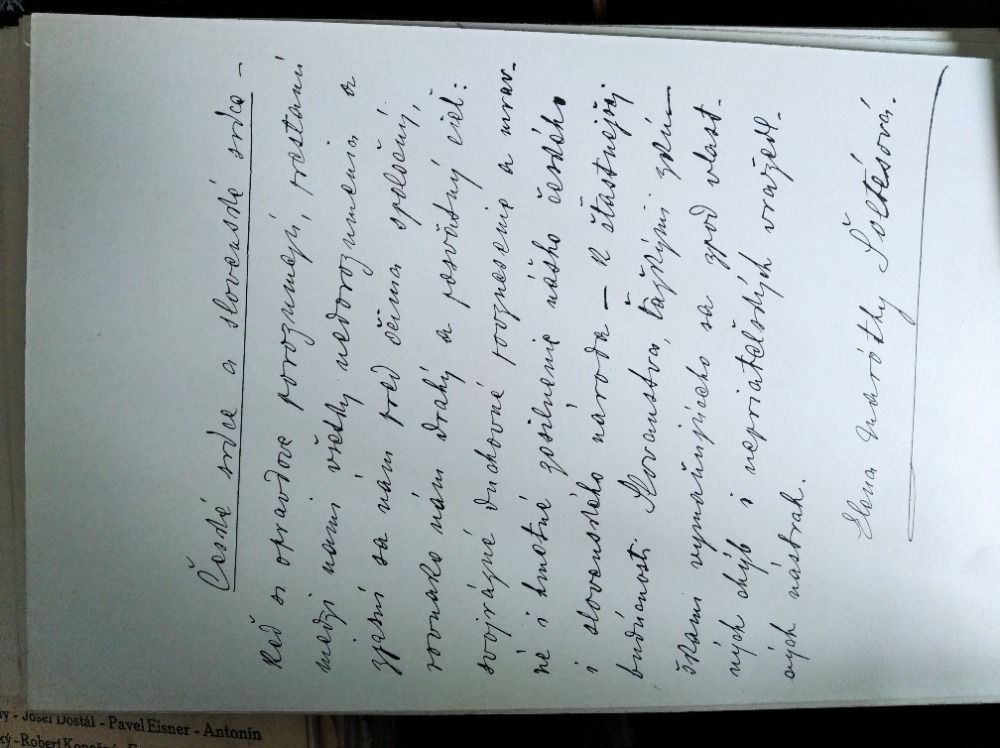 České srdce a slovenské srdce –
Keď si opravdove porozumejú, prestanú
medzi nami všetky nedorozumenia a
zjasní sa nám pred očima spoločný,
rovnako nám drahý a posvätný cieľ:
svojrázné duchovné povznesenie a mrav-
né i hmotné zosilnenie nášho českého
i slovenského národa – k šťastnejšej
budúcnosti Slovanstva, ťažkými zkú–
škami vymaňujúceho sa zpod vlast-
ných chýb i nepriateľských vražed-
ných nástrah.
Elena Maróthy Šoltésová.
ny - Josef Dostál - Pavel Eisner - Antonín
ký - Robert Konečný